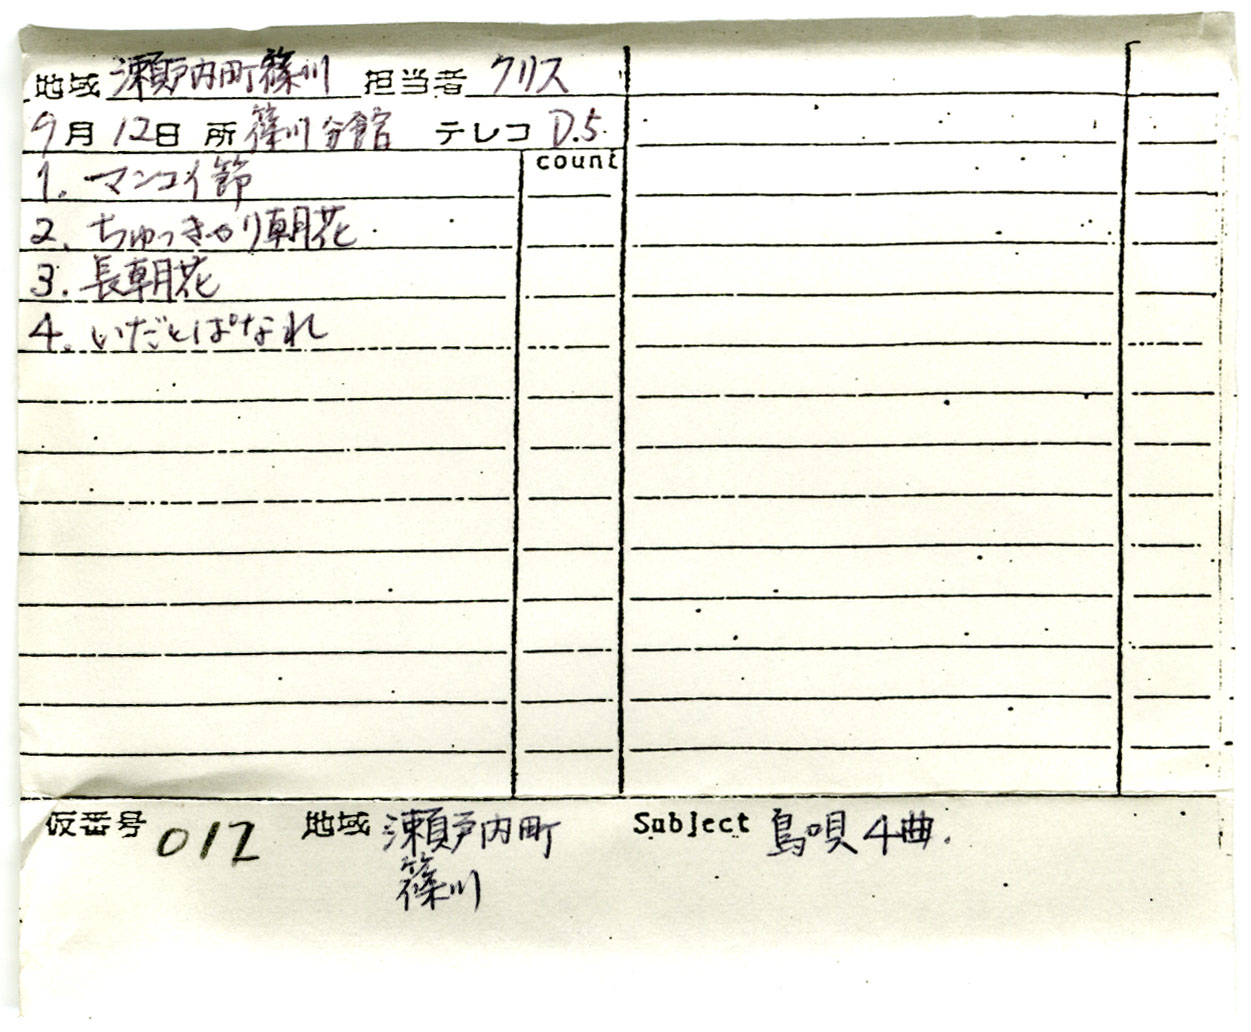 地域 瀬戸内町篠川 担当者 クリス
9月12日 所 篠川分館 テレコ D.5.
count
1. マンコイ節
2. ちゅっきゃり朝花
3. 長朝花
4. いだとぱなれ
仮番号 012 地域 瀬戸内町 Subject 島唄4曲.
篠川